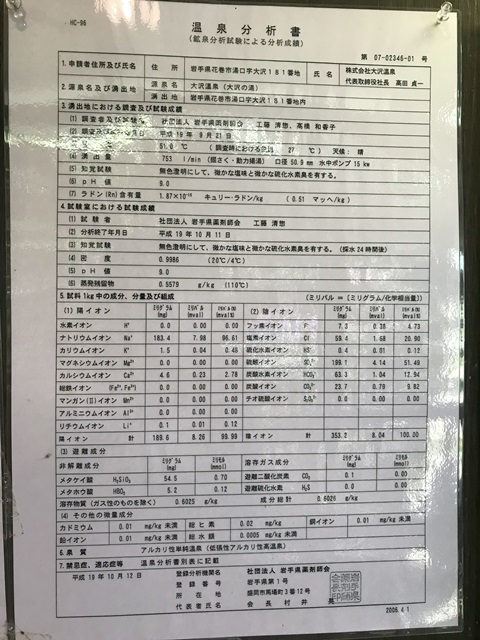 HC-96
温泉分析書
(鉱泉分析試験による分析成績)
第 07-02346-01 号
1.申請者住所及び氏名 住所 岩手県花巻市湯口字大沢181番地 氏名 株式会社大沢温泉 代表取締役社長 高田 貞一
2.源泉名及び湧出地 源泉名 大沢温泉 (大沢の湯)
湧出地 岩手県花巻市湯口字大沢181番地内
3.湧出地における調査及び試験成績
(1) 調査者及び試験者 社団法人 岩手県薬剤師会 工藤 清惣、高橋 和香子
(2) 調査及び試験年月日 平成 19 年 9 月 21 日
51.0 ℃ (調査時における気温 27 ℃) 天候:晴
(4) 湧出量 753 l/min (掘さく・動力揚湯) 口径 50.9 mm 水中ポンプ 15 kw
(5) 知覚試験 無色澄明にして、微かな塩味と微かな硫化水素臭を有する。
(6) pH値 9.0
(7) ラドン(Rn)含有量 キュリー・ラドン/kg (0.51 マッヘ/kg)
4.試験室における試験成績
(1) 試験者 社団法人 岩手県薬剤師会 工藤 清惣
(2) 分析終了年月日 平成 19 年 10 月 11 日
(3) 知覚試験 無色澄明にして、微かな塩味と微かな硫化水素臭を有する。(採水24時間後)
(4) 密度 0.9986 (20℃/4℃)
(5) pH値 9.0
(6) 蒸発残留物 0.5579 g/kg (110℃)
5.試料1kg中の成分、分量及び組成 (ミリバル=(ミリグラム/化学相当量))
(1) 陽イオン ミリグラム (mg) ミリバル (mval) ミリバル(%) (mval%)
水素イオン H⁺ 0.0 0.00 0.00
ナトリウムイオン Na⁺ 183.4 7.98 96.61
カリウムイオン K⁺ 1.5 0.04 0.48
マグネシウムイオン Mg²⁺ 0.0 0.00 0.00
カルシウムイオン Ca²⁺ 4.6 0.23 2.78
総鉄イオン (Fe²⁺,Fe³⁺) 0.0 0.00 0.00
マンガン(Ⅱ)イオン Mn²⁺ 0.0 0.00 0.00
アルミニウムイオン Al³⁺ 0.0 0.00 0.00
リチウムイオン Li⁺ 0.1 0.01 0.12
陽イオン 計 189.6 8.26 99.99
(2) 陰イオン ミリグラム (mg) ミリバル (mval) ミリバル(%) (mval%)
フッ素イオン F⁻ 7.3 0.38 4.73
塩素イオン Cl⁻ 59.4 1.68 20.90
硫化水素イオン HS⁻ 0.4 0.01 0.12
硫酸イオン SO₄²⁻ 199.1 4.14 51.49
炭酸水素イオン HCO₃⁻ 63.3 1.04 12.94
炭酸イオン CO₃²⁻ 23.7 0.79 9.82
チオ硫酸イオン S₂O₃²⁻ 0.0 0.00 0.00
陰イオン 計 353.2 8.04 100.00
(3) 遊離成分
非解離成分 ミリグラム (mg) ミリモル (mmol)
メタケイ酸 H₂SiO₃ 54.5 0.70
メタホウ酸 HBO₂ 5.2 0.12
溶存ガス成分 ミリグラム (mg) ミリモル (mmol)
遊離二酸化炭素 CO₂ 0.1 0.00
遊離硫化水素 H₂S 0.0 0.00
溶存物質(ガス性のものを除く) 0.6025 g/kg 成分総計 0.6026 g/kg
(4) その他の微量成分
カドミウム 0.01 mg/kg 未満 総ヒ素 0.02 mg/kg 銅イオン 0.01 mg/kg 未満
鉛イオン 0.01 mg/kg 未満 総水銀 0.0005 mg/kg 未満
6.泉質 アルカリ性単純温泉 (低張性アルカリ性高温泉)
7.禁忌症、適応症等 温泉分析書別表に記載
平成 19 年 10 月 12 日 登録分析機関名 社団法人 岩手県薬剤師会
登録番号 岩手県第1号
所在地 盛岡市馬場町3番12号
代表者氏名 会長 村井
2006.4.1